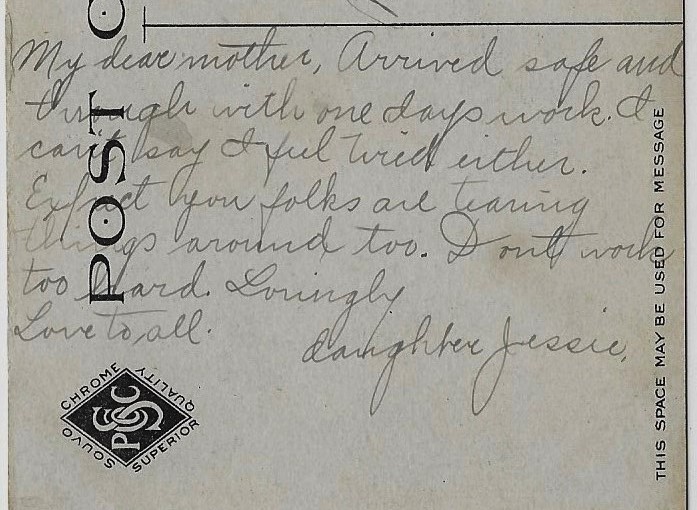 My dear mother, Arrived safe and
through with one days work. I
can't say I feel tired either.
Expect you folks are tearing
things around too. Dont work
too hard. Lovingly
Love to all.
daughter Jessie.
POST C
THIS SPACE MAY BE USED FOR MESSAGE
SOUVO CHROME
SUPERIOR QUALITY
PSC